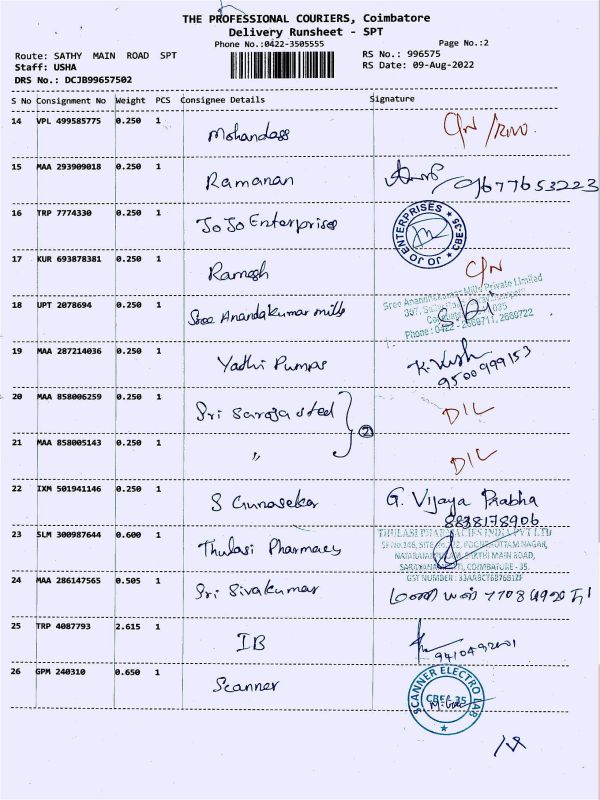 THE PROFESSIONAL COURIERS, Coimbatore
Delivery Runsheet - SPT
Phone No.:0422-3505555
Page No.:2
Route: SATHY MAIN ROAD SPT
RS No.: 996575
Staff: USHA
RS Date: 09-Aug-2022
DRS No.: DCJB99657502
S No Consignment No Weight PCS Consignee Details Signature
14 VPL 499585775 0.250 1 Mohandass
15 MAA 293909018 0.250 1 Ramanan 9677653223
16 TRP 7774330 0.250 1 JoJo Enterprises
JO JO ENTERPRISES * CBE-35 *
17 KUR 693878381 0.250 1 Ramesh
18 UPT 2078694 0.250 1 Sree Anandakumar mills
Sree Anandhakumar Mills Private Limited
Phone : 0422 - 2669711, 2669722
19 MAA 287214036 0.250 1 Yadhi Pumps
9500999153
20 MAA 858006259 0.250 1 Sri Saroja steel D/L
2
21 MAA 858005143 0.250 1 " D/L
22 IXM 501941146 0.250 1 S Gunasekar G. Vijaya Prabha
8838178906
23 SLM 300987644 0.600 1 Thulasi Pharmacys
THULASI PHARMACIES INDIA PVT LTD
MAIN ROAD,
COIMBATORE - 35.
GST NUMBER :
24 MAA 286147565 0.505 1 Sri Sivakumar
25 TRP 4087793 2.615 1 IB
26 GPM 240310 0.650 1 Scanner
SCANNER ELECTRO LAB
CBE-35